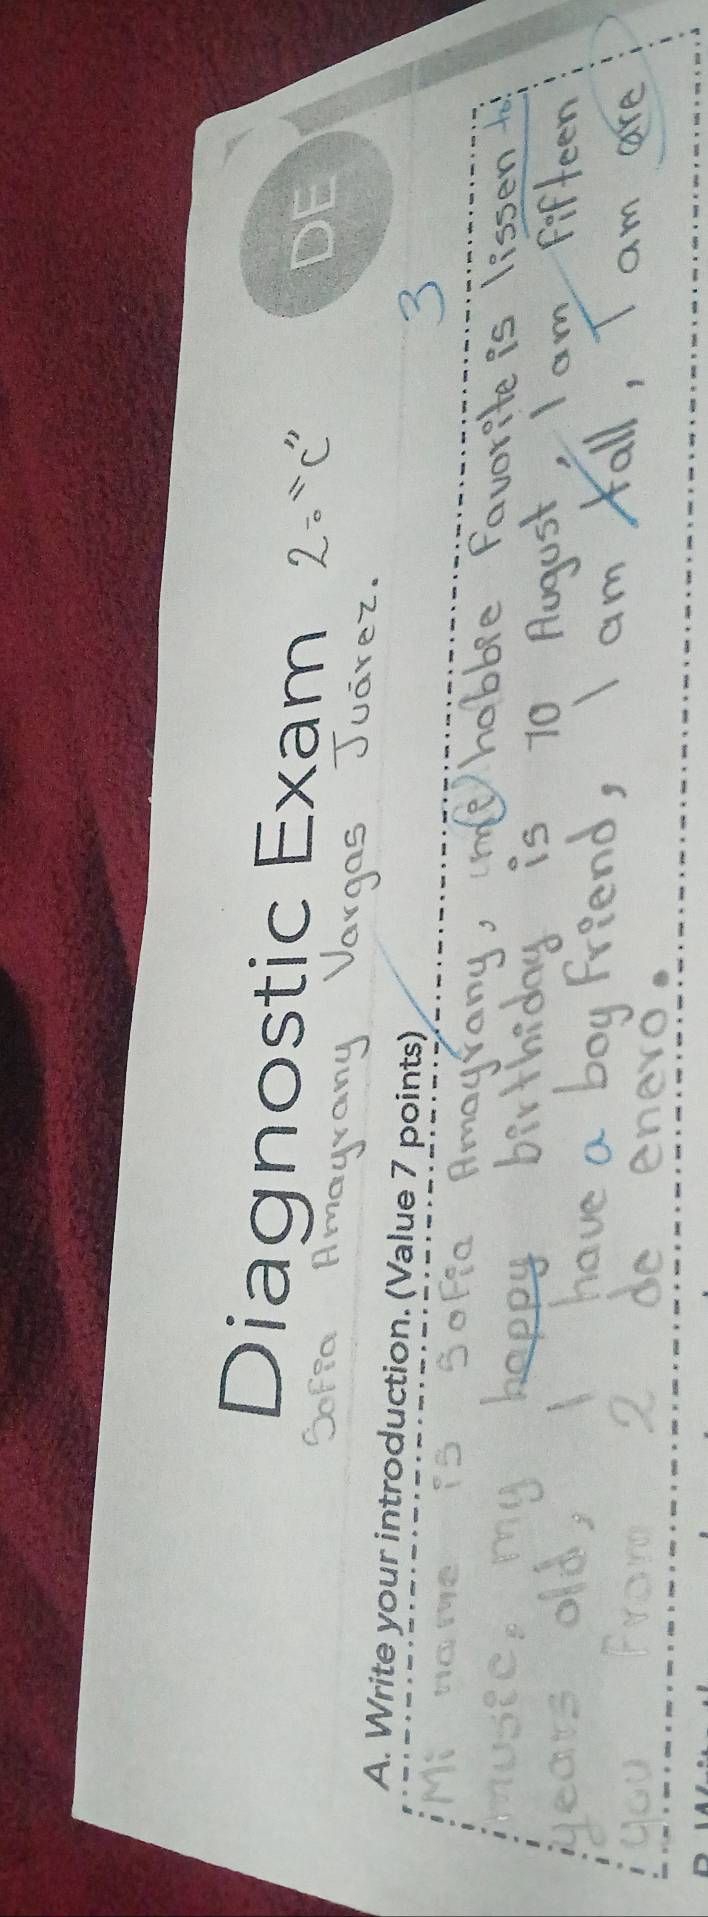 DE
Diagnostic Exam 2.° "C"
Sofia Amayrany Vargas Juárez.
A. Write your introduction. (Value 7 points)
3
Mi name is Sofia Amayrany, me habbie favorite is lissen to
music, my happy birthiday is 10 August, I am fifteen
years old, I have a boy friend, I am tall, I am are
you from 2 de enero.